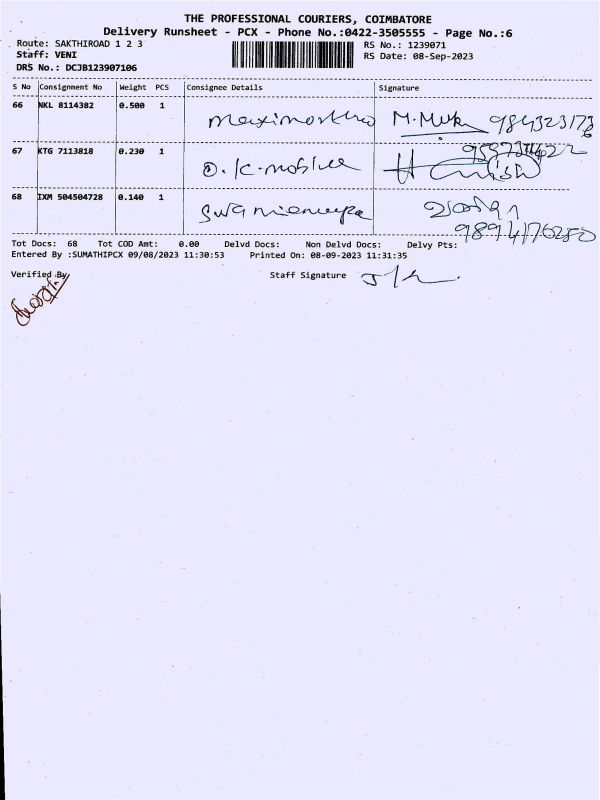 THE PROFESSIONAL COURIERS, COIMBATORE
Delivery Runsheet - PCX - Phone No.:0422-3505555 - Page No.:6
Route: SAKTHIROAD 1 2 3 RS No.: 1239071
Staff: VENI RS Date: 08-Sep-2023
DRS No.: DCJB123907106
S No Consignment No Weight PCS Consignee Details Signature
66 NKL 8114382 0.500 1 M.Muk
67 KTG 7113818 0.230 1 O.K.mobile
68 IXM 504504728 0.140 1
9894176250
Tot Docs: 68 Tot COD Amt: 0.00 Delvd Docs: Non Delvd Docs: Delvy Pts:
Entered By :SUMATHIPCX 09/08/2023 11:30:53 Printed On: 08-09-2023 11:31:35
Verified By Staff Signature